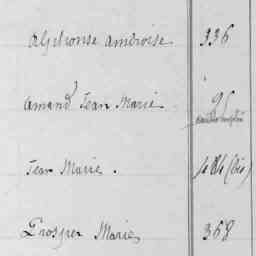 Alphonse Ambroise 336
Amand Jean Marie 96
Jean Marie. 484 (bis)
Prosper Marie 368